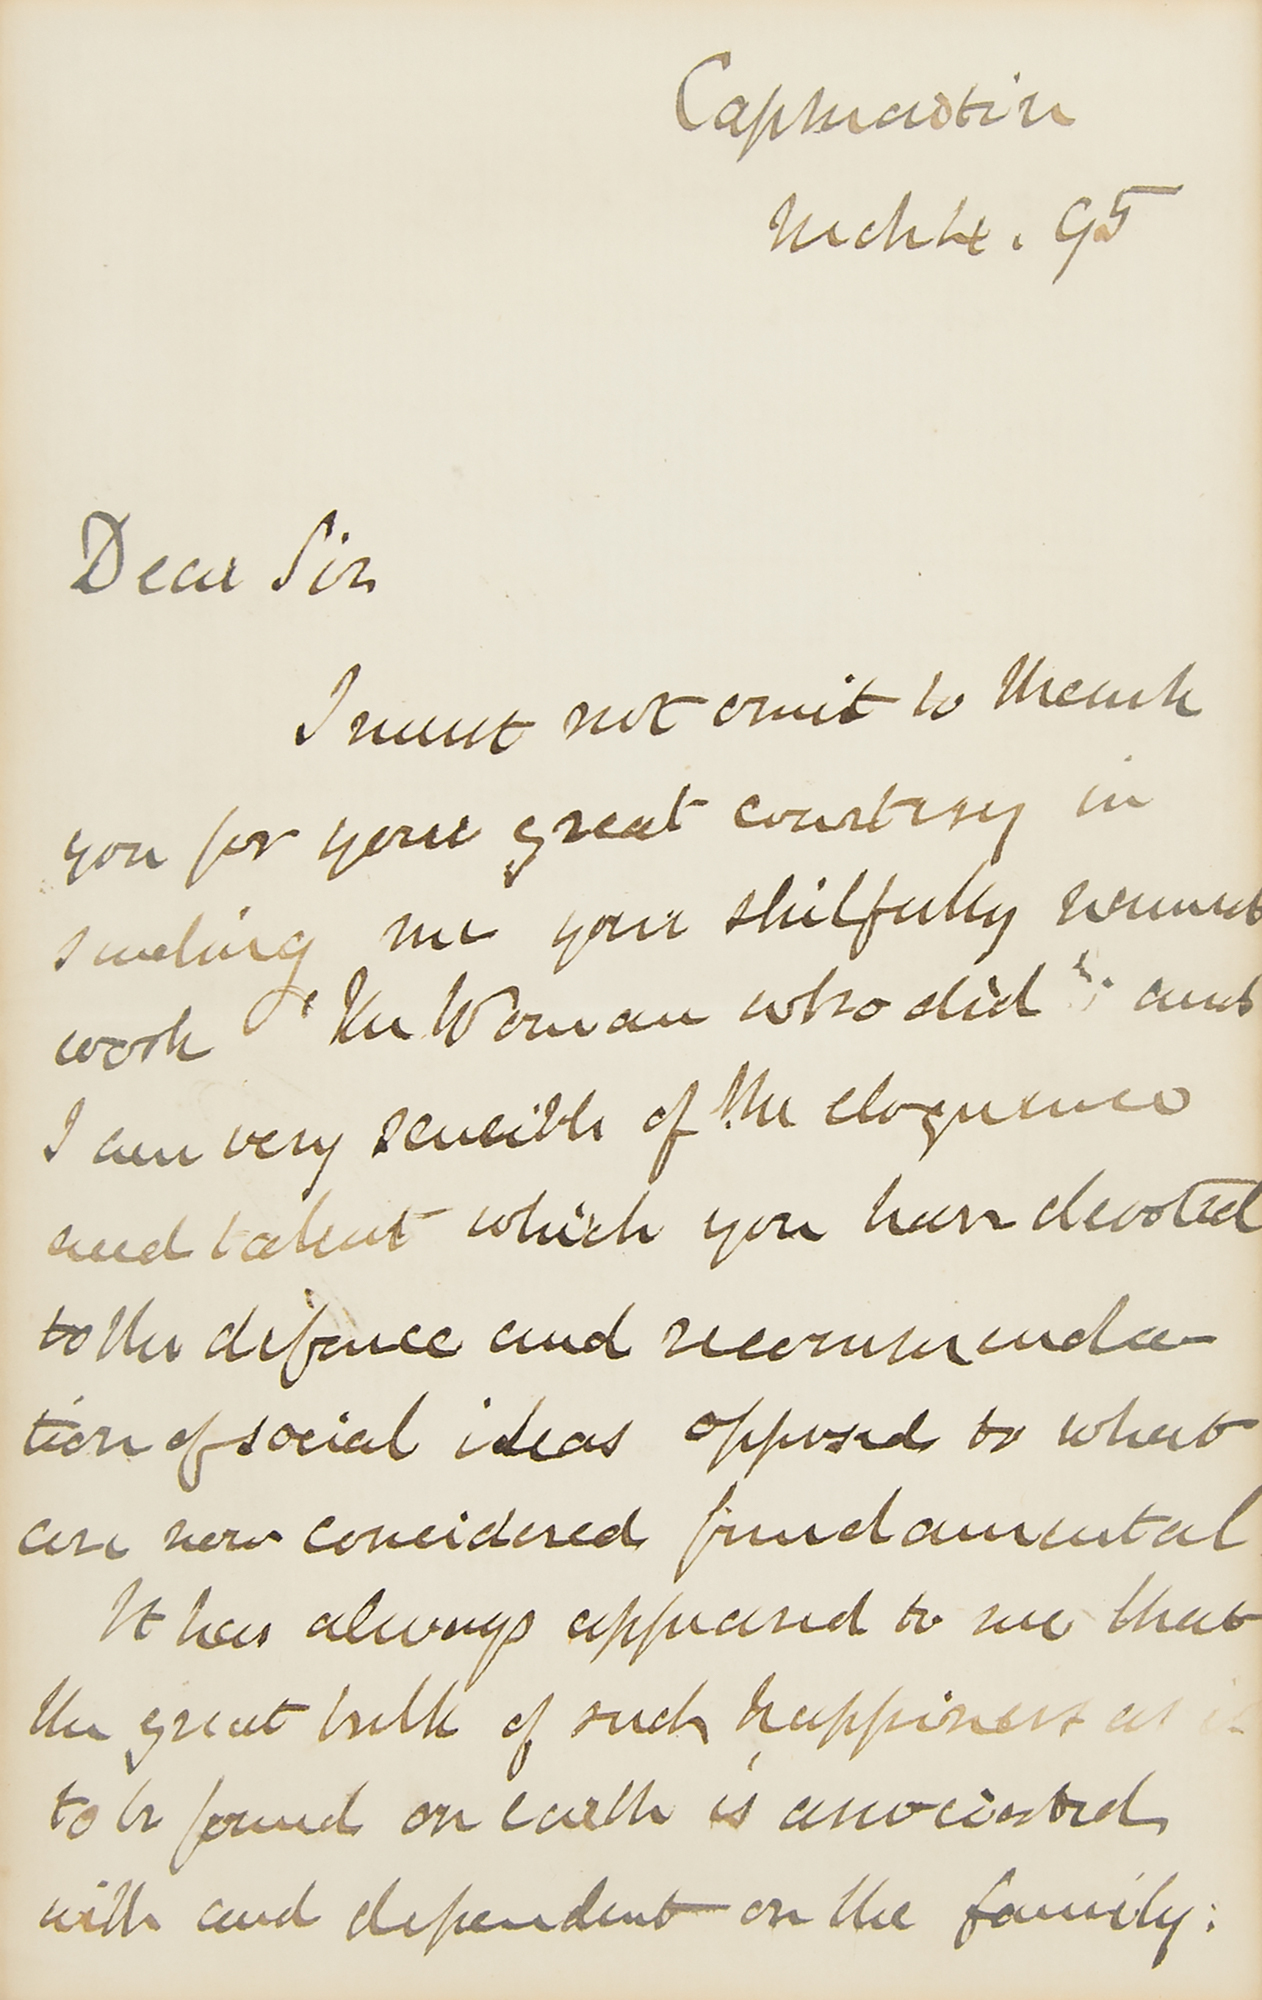 Capmartin
Mch 4. 95
Dear Sir
I must not omit to thank
you for your great courtesy in
sending me your skilfully
work 'The Woman who did'; and
I am very sensible of the eloquence
and talent which you have devoted
to the defence and recommenda-
tion of social ideas opposed to what
are now considered fundamental
It has always appeared to me that
the great bulk of such happiness as is
to be found on earth is associated
with and dependent on the family: